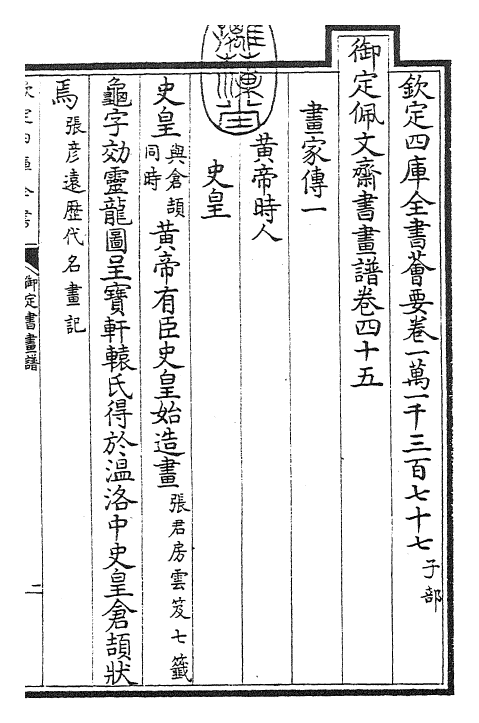 欽定四庫全書薈要卷一萬一千三百七十七 子部
御定佩文齋書畫譜卷四十五
畫家傳一
黃帝時人
史皇
史皇 與倉頡同時 黃帝有臣史皇始造畫 張君房雲笈七籤
龜字効靈龍圖呈寶軒轅氏得於温洛中史皇倉頡狀
焉 張彥遠歷代名畫記
欽定四庫全書
御定書畫譜